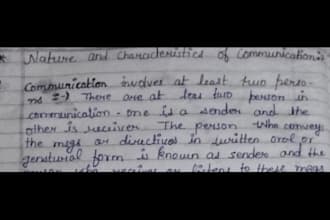 * Nature and characteristics of communication:-
Communication involves at least two perso-
ns :-) There are at leas two person in
communication - one is a sender and the
other is receiver. The person who convey
the msgs or directives in written oral or
gestural form is known as sender and the
who receives or listens to these msgs